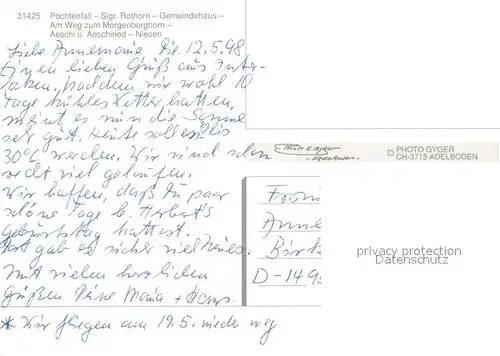 31425 Pochtenfall – Sigr. Rothorn – Gemeindehaus –
Am Weg zum Morgenberghorn –
Aeschi u. Aeschiried – Niesen
Liebe Annemarie Die. 12.5.98
Einen lieben Gruß aus Inter-
laken, nachdem wir wohl 10
Tage kühles Wetter hatten,
meint es nun die Sonne
sehr gut. Heute soll es bis
30°C werden. Wir sind schon
recht viel gelaufen.
Wir hoffen, daß Du paar
schöne Tage b. Herbert's
Geburtstag hattest.
Dort gab es sicher viel Neues.
Mit vielen herzlichen
Grüßen Deine Maria + Hans.
* Wir fliegen am 19.5. wieder weg
© PHOTO GYGER
CH-3715 ADELBODEN
Anne
D-149
privacy protection
Datenschutz